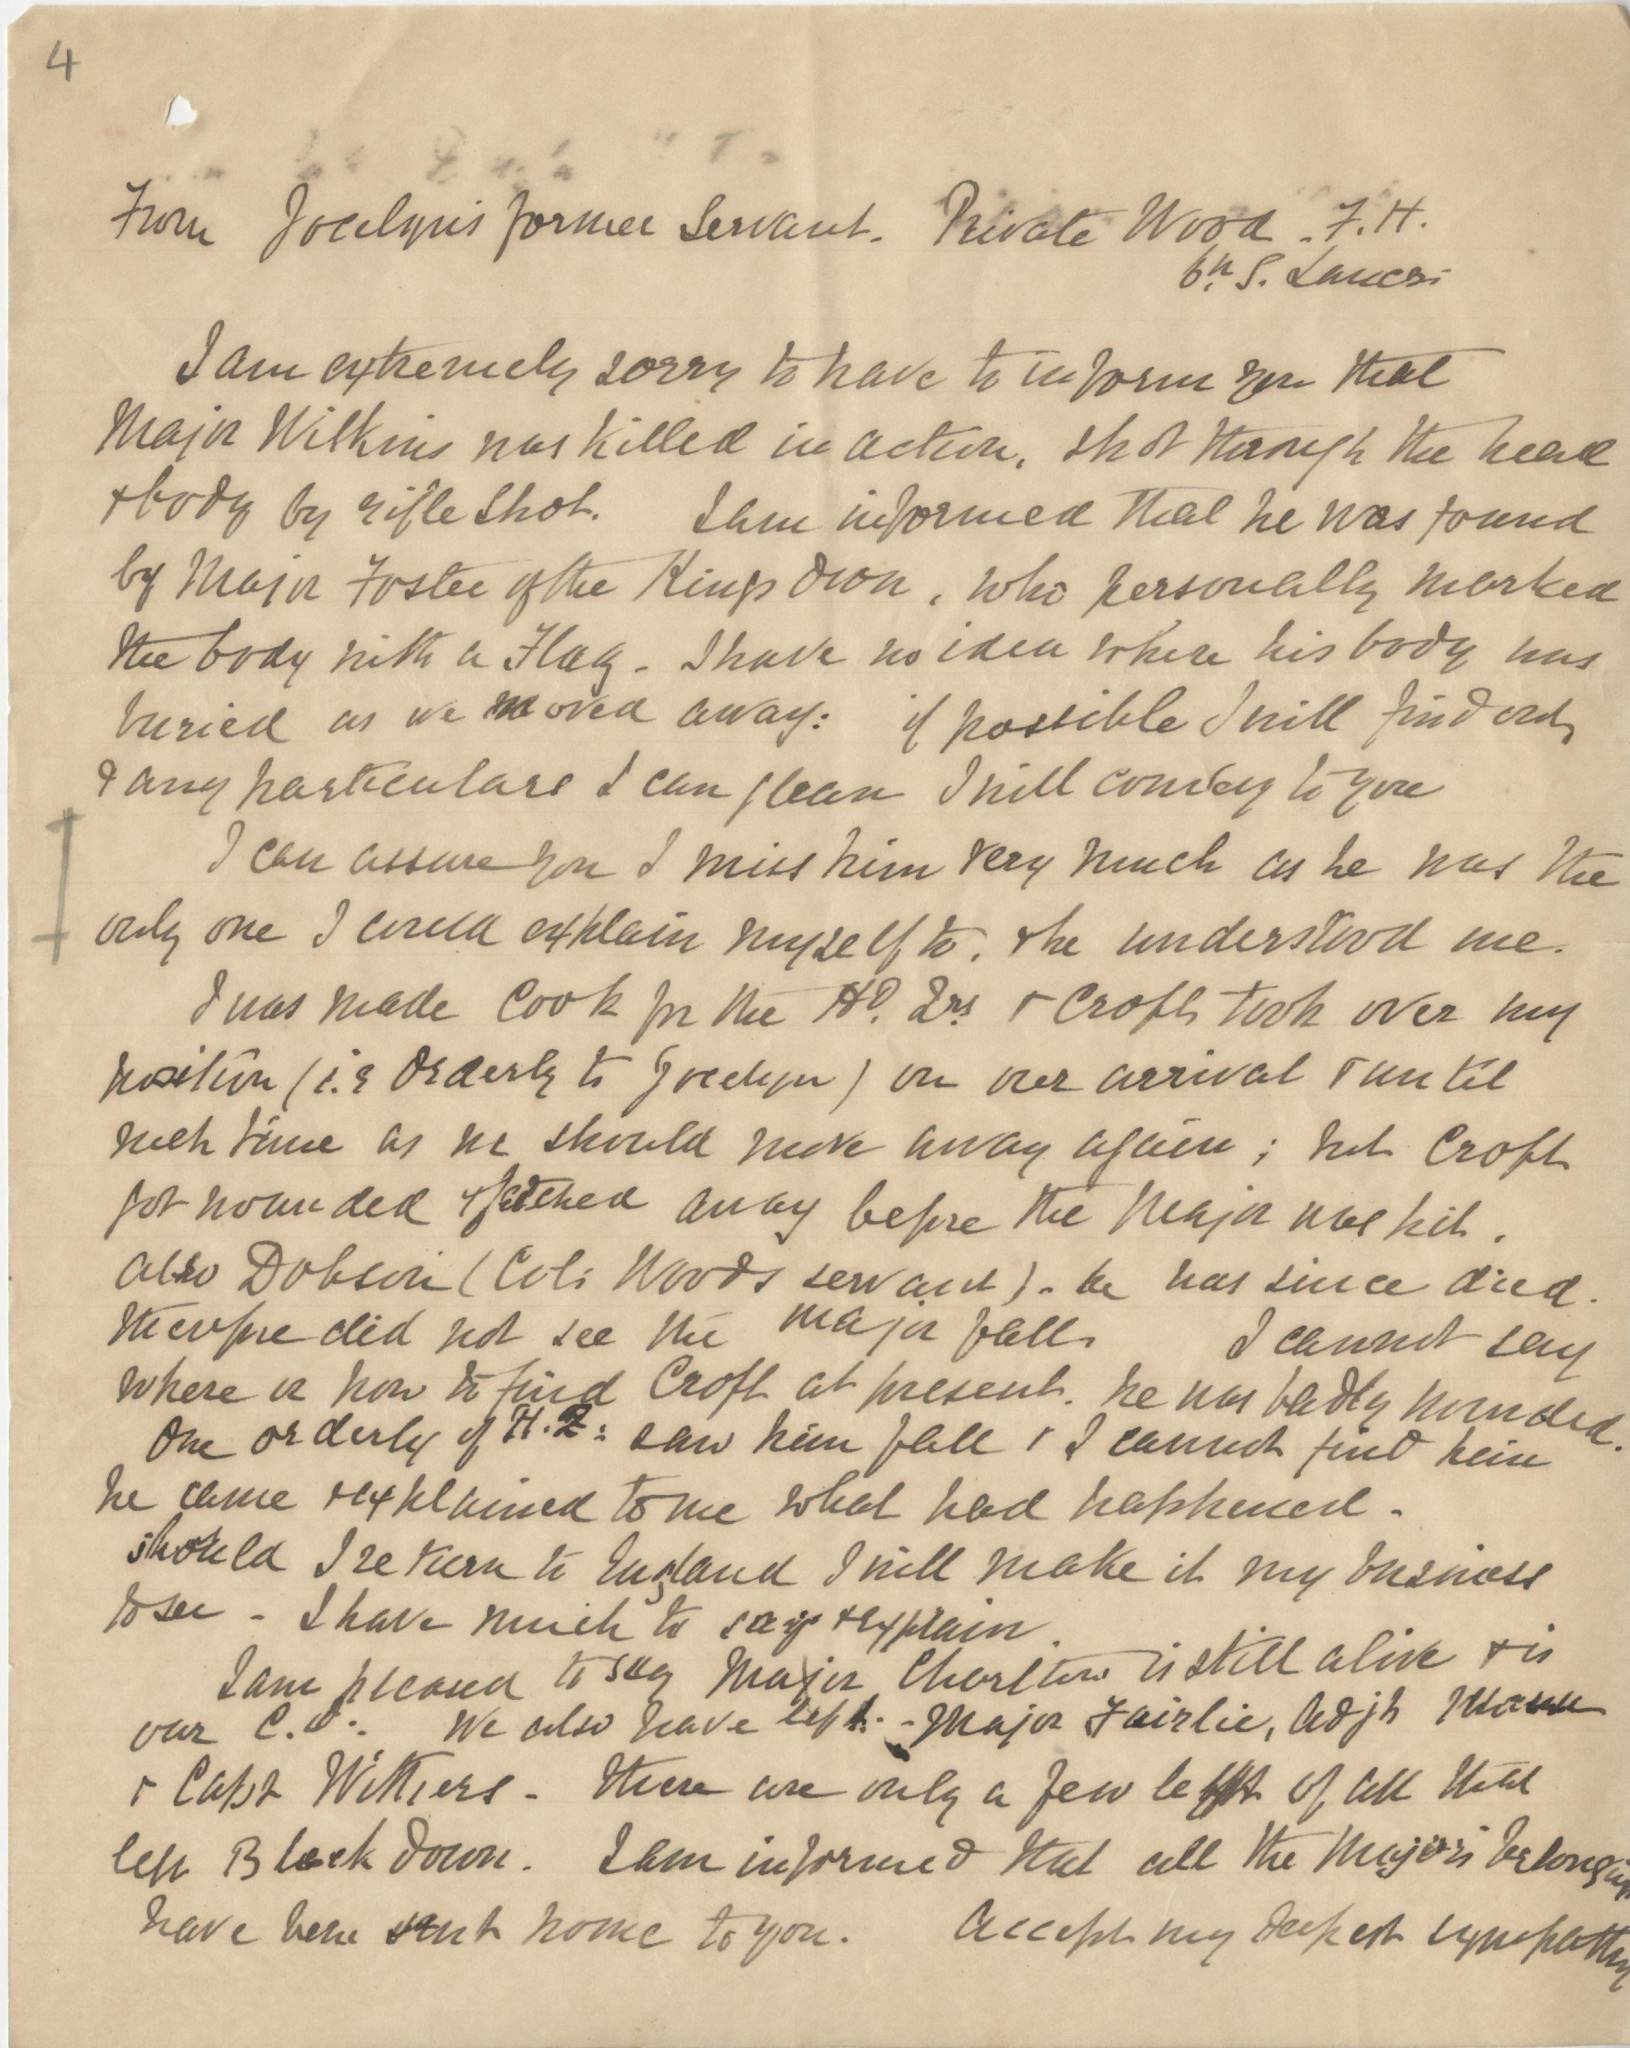 4
From Jocelyn's former Servant. Private Wood. F. H.
6th S. Lancs:
I am extremely sorry to have to inform you that
Major Wilkins was killed in action, shot through the head
& body by rifle shot. I am informed that he was found
by Major Foster of the Kings Own, who personally marked
the body with a Flag - I have no idea where his body was
buried as we moved away: if possible I will find out,
& any particulars I can glean I will convey to you
I can assure you I miss him very much as he was the
only one I could explain myself to, & he understood me.
I was made Cook for the HD. Qrs & Croft took over my
position (i.e Orderly to Jocelyn) on our arrival & until
such time as we should move away again; but Croft
got wounded & fetched away before the Major was hit.
also Dobson (Col: Woods servant) - he has since died.
therefore did not see the Major fall. I cannot say
where or how to find Croft at present. he was badly wounded.
One orderly of H. Q: saw him fall & I cannot find him
he came & explained to me what had happened -
should I return to England I will make it my business
to see - I have much to say & explain.
I am pleased to say Major Charlton is still alive & is
our C.O:. We also have left. - Major Fairlie, Adjt Mason
& Capt Withers - there are only a few left of all that
left Blackdown. I am informed that all the Major's belongings
have been sent home to you. Accept my deepest sympathy